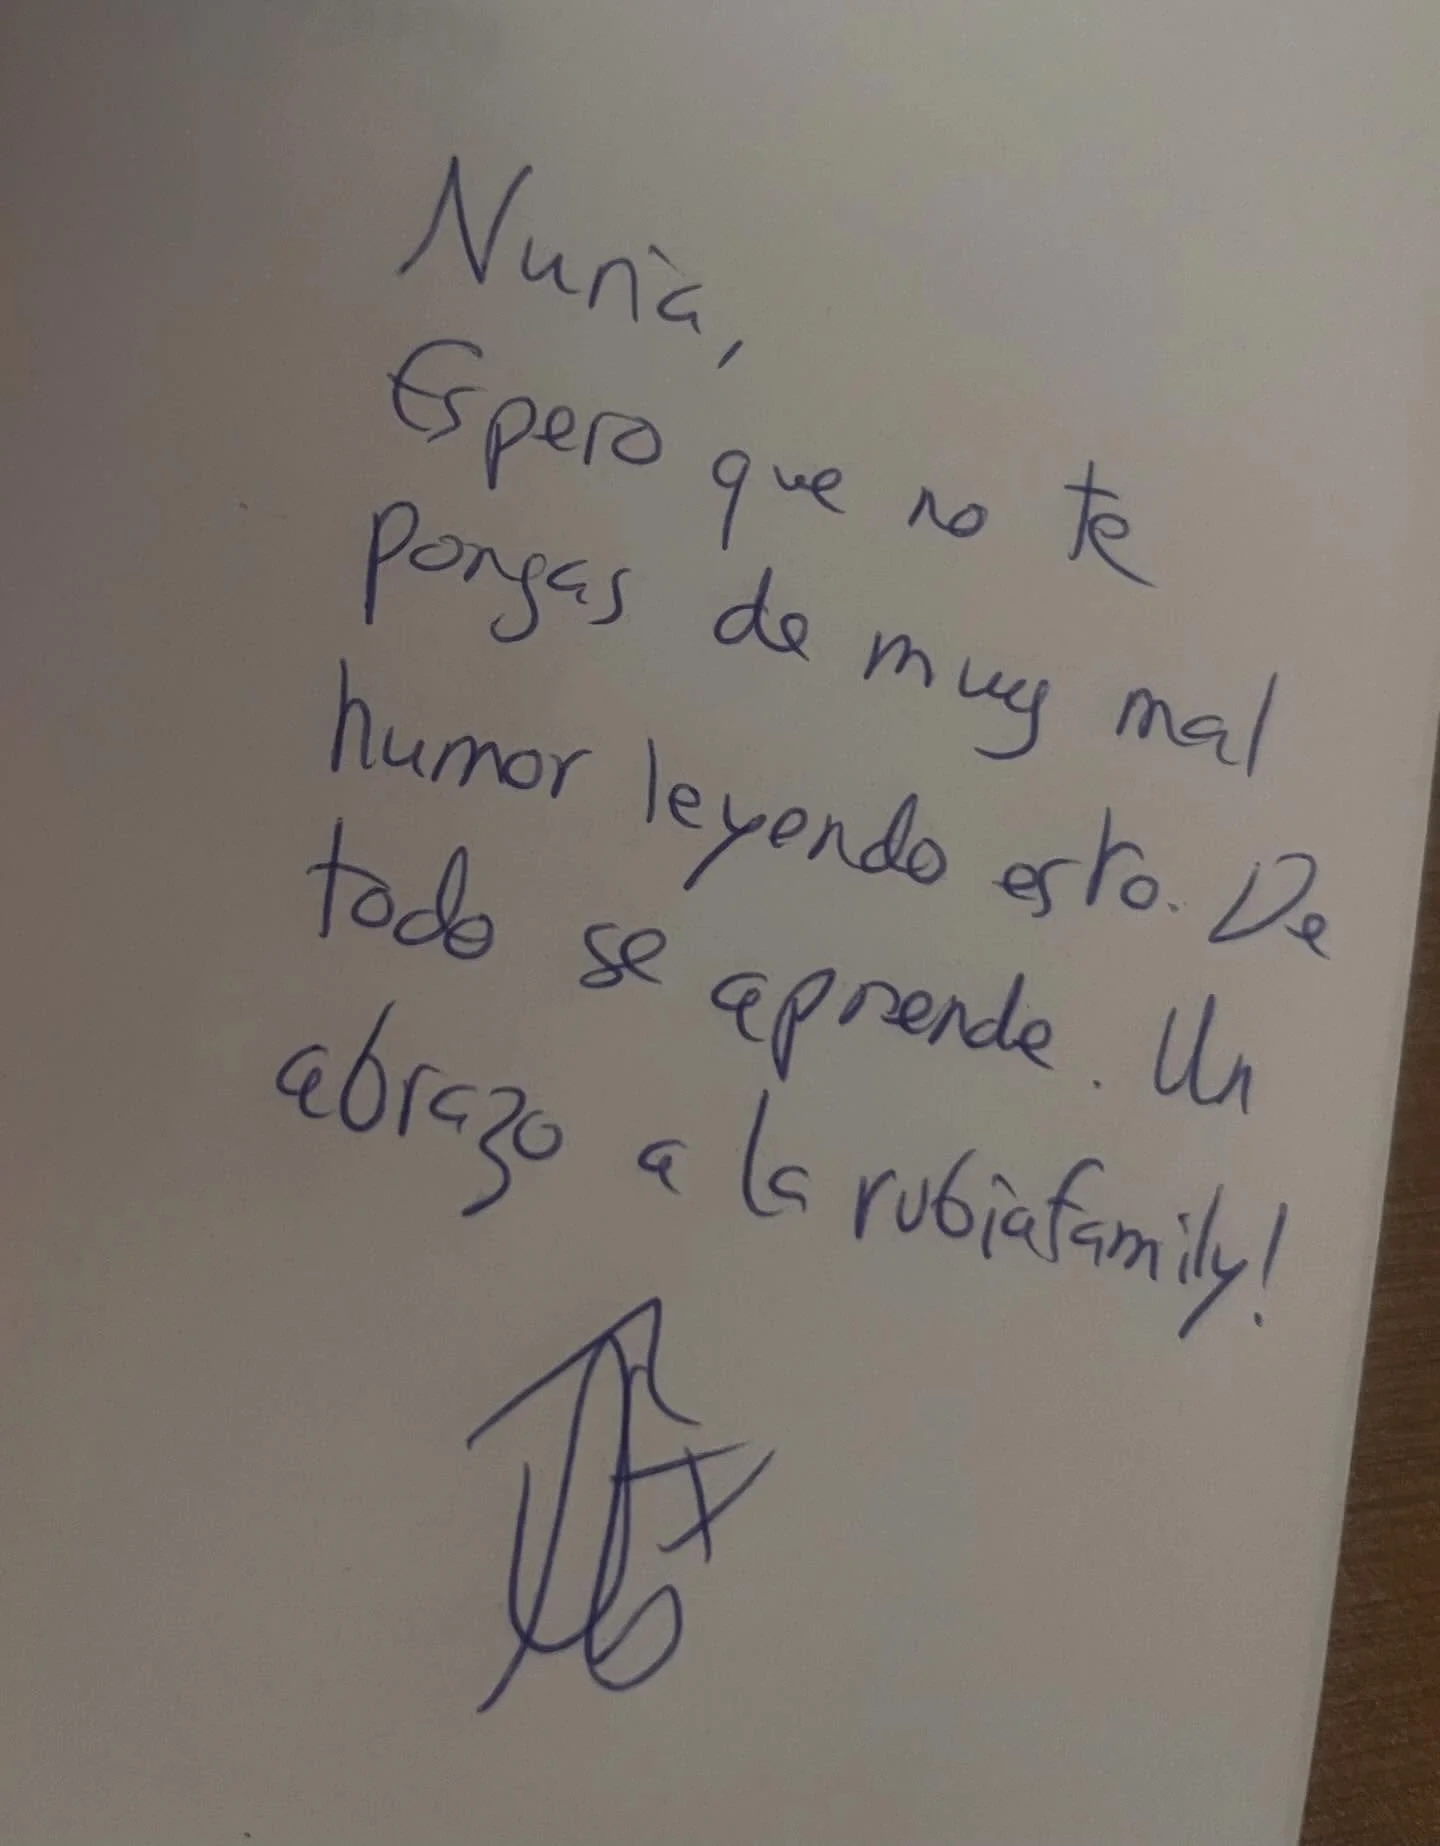 Nuria,
Espero que no te
pongas de muy mal
humor leyendo esto. De
todo se aprende. Un
abrazo a la rubiafamily!